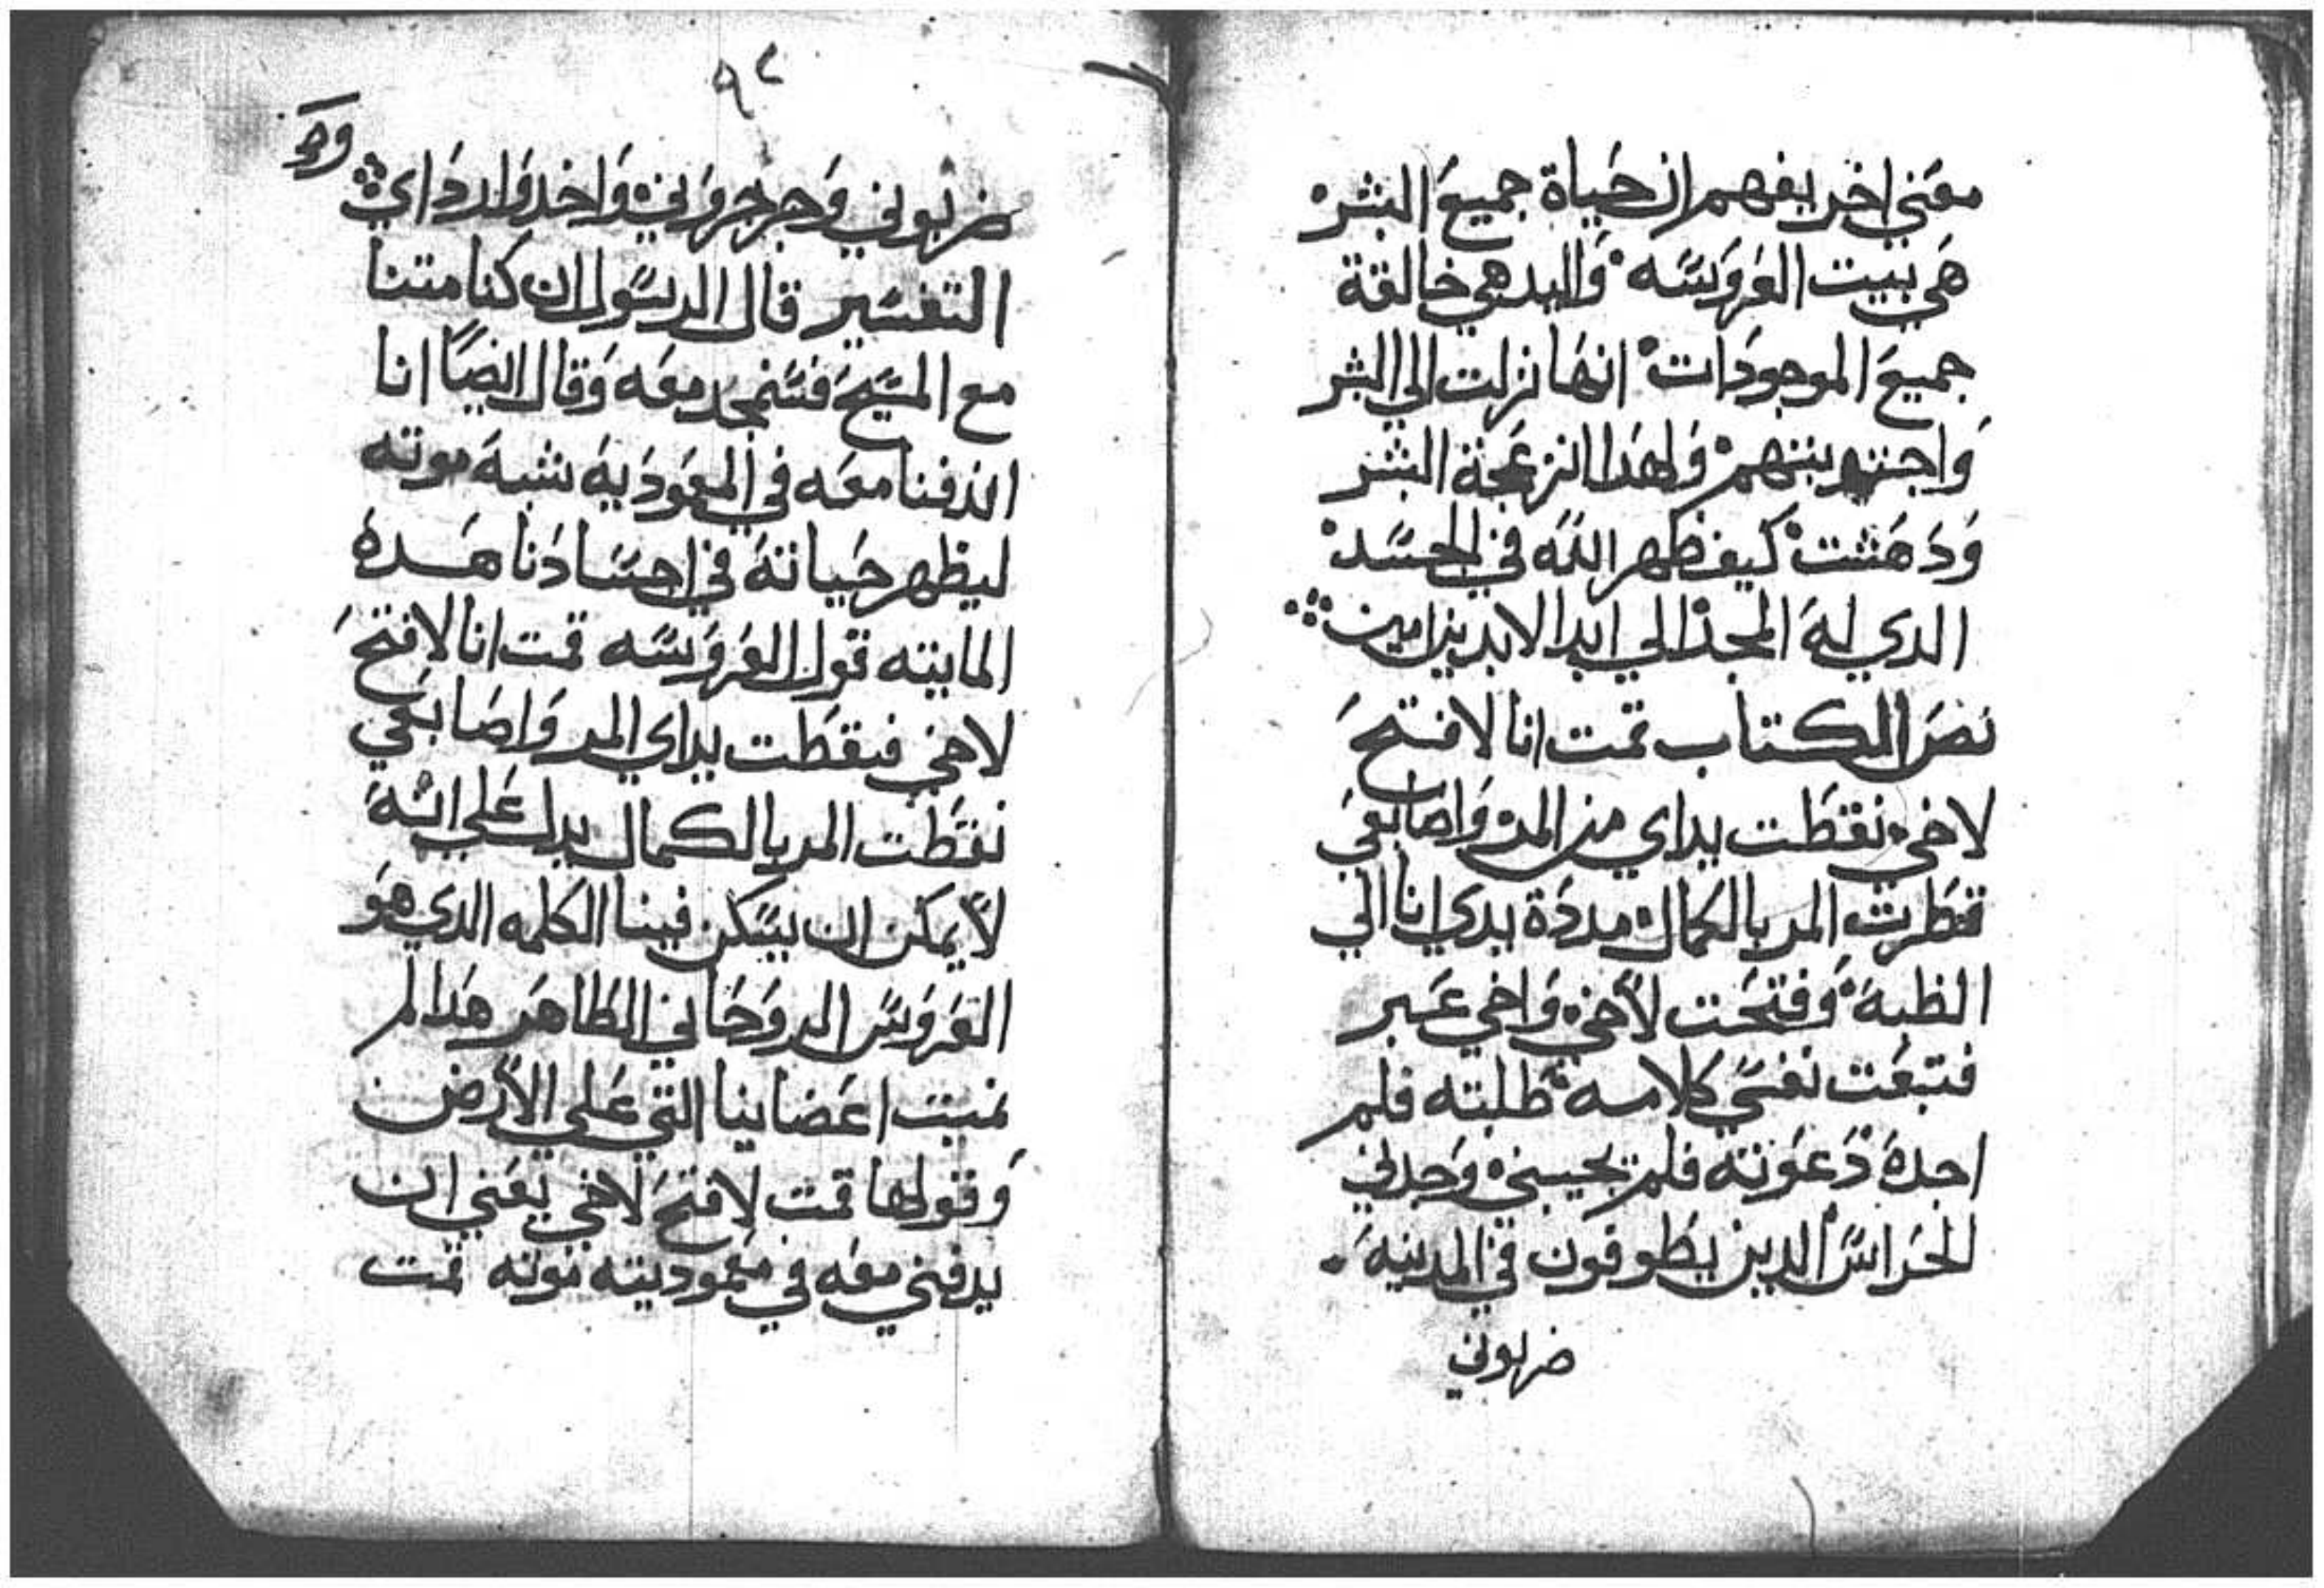 معني اخر يفهم ان حياة جميع البشر
هي بيت العروسه واليد هي خالقة
جميع الموجودات انها نزلت الي البشر
بينهم ولهدا انزعجة البشر
ودهشت كيف ظهر الله في الجسد
الدي له المجد الي ابد الابدين امين
نص الكتاب قمت انا لافتح
لاخي نقطت يداي من المر واصابعي
قطرت المر بالكمال مددة يدي انا الي
الظبة وفتحت لاخي واخي عبر
فتبعت نفسي كلامه طلبته فلم
اجده دعوته فلم يجيبني وجدني
الحراس الدين يطوفون في المدينه
ضربوني
٩٢
وجـ
ضربوني وجرجروني واخدوا رداي
التفسير قال الرسول ان كنا متنا
مع المسيح فسنمجد معه وقال ايضا انا
اندفنا معه في المعمودية شبه موته
ليظهر حياته في اجسادنا هده
المايته قول العروسه قمت انا لافتح
لاخي فنقطت يداي المر واصابعي
نقطت المر بالكمال يدل علي انه
لا يمكن ان يسكن فينا الكلمه الدي هو
العروس الروحاني الطاهر هدا لم
نميت اعضاينا التي علي الارض
وقولها قمت لافتح لاخي يعني ان
يدفني معه في معموديته موته قمت